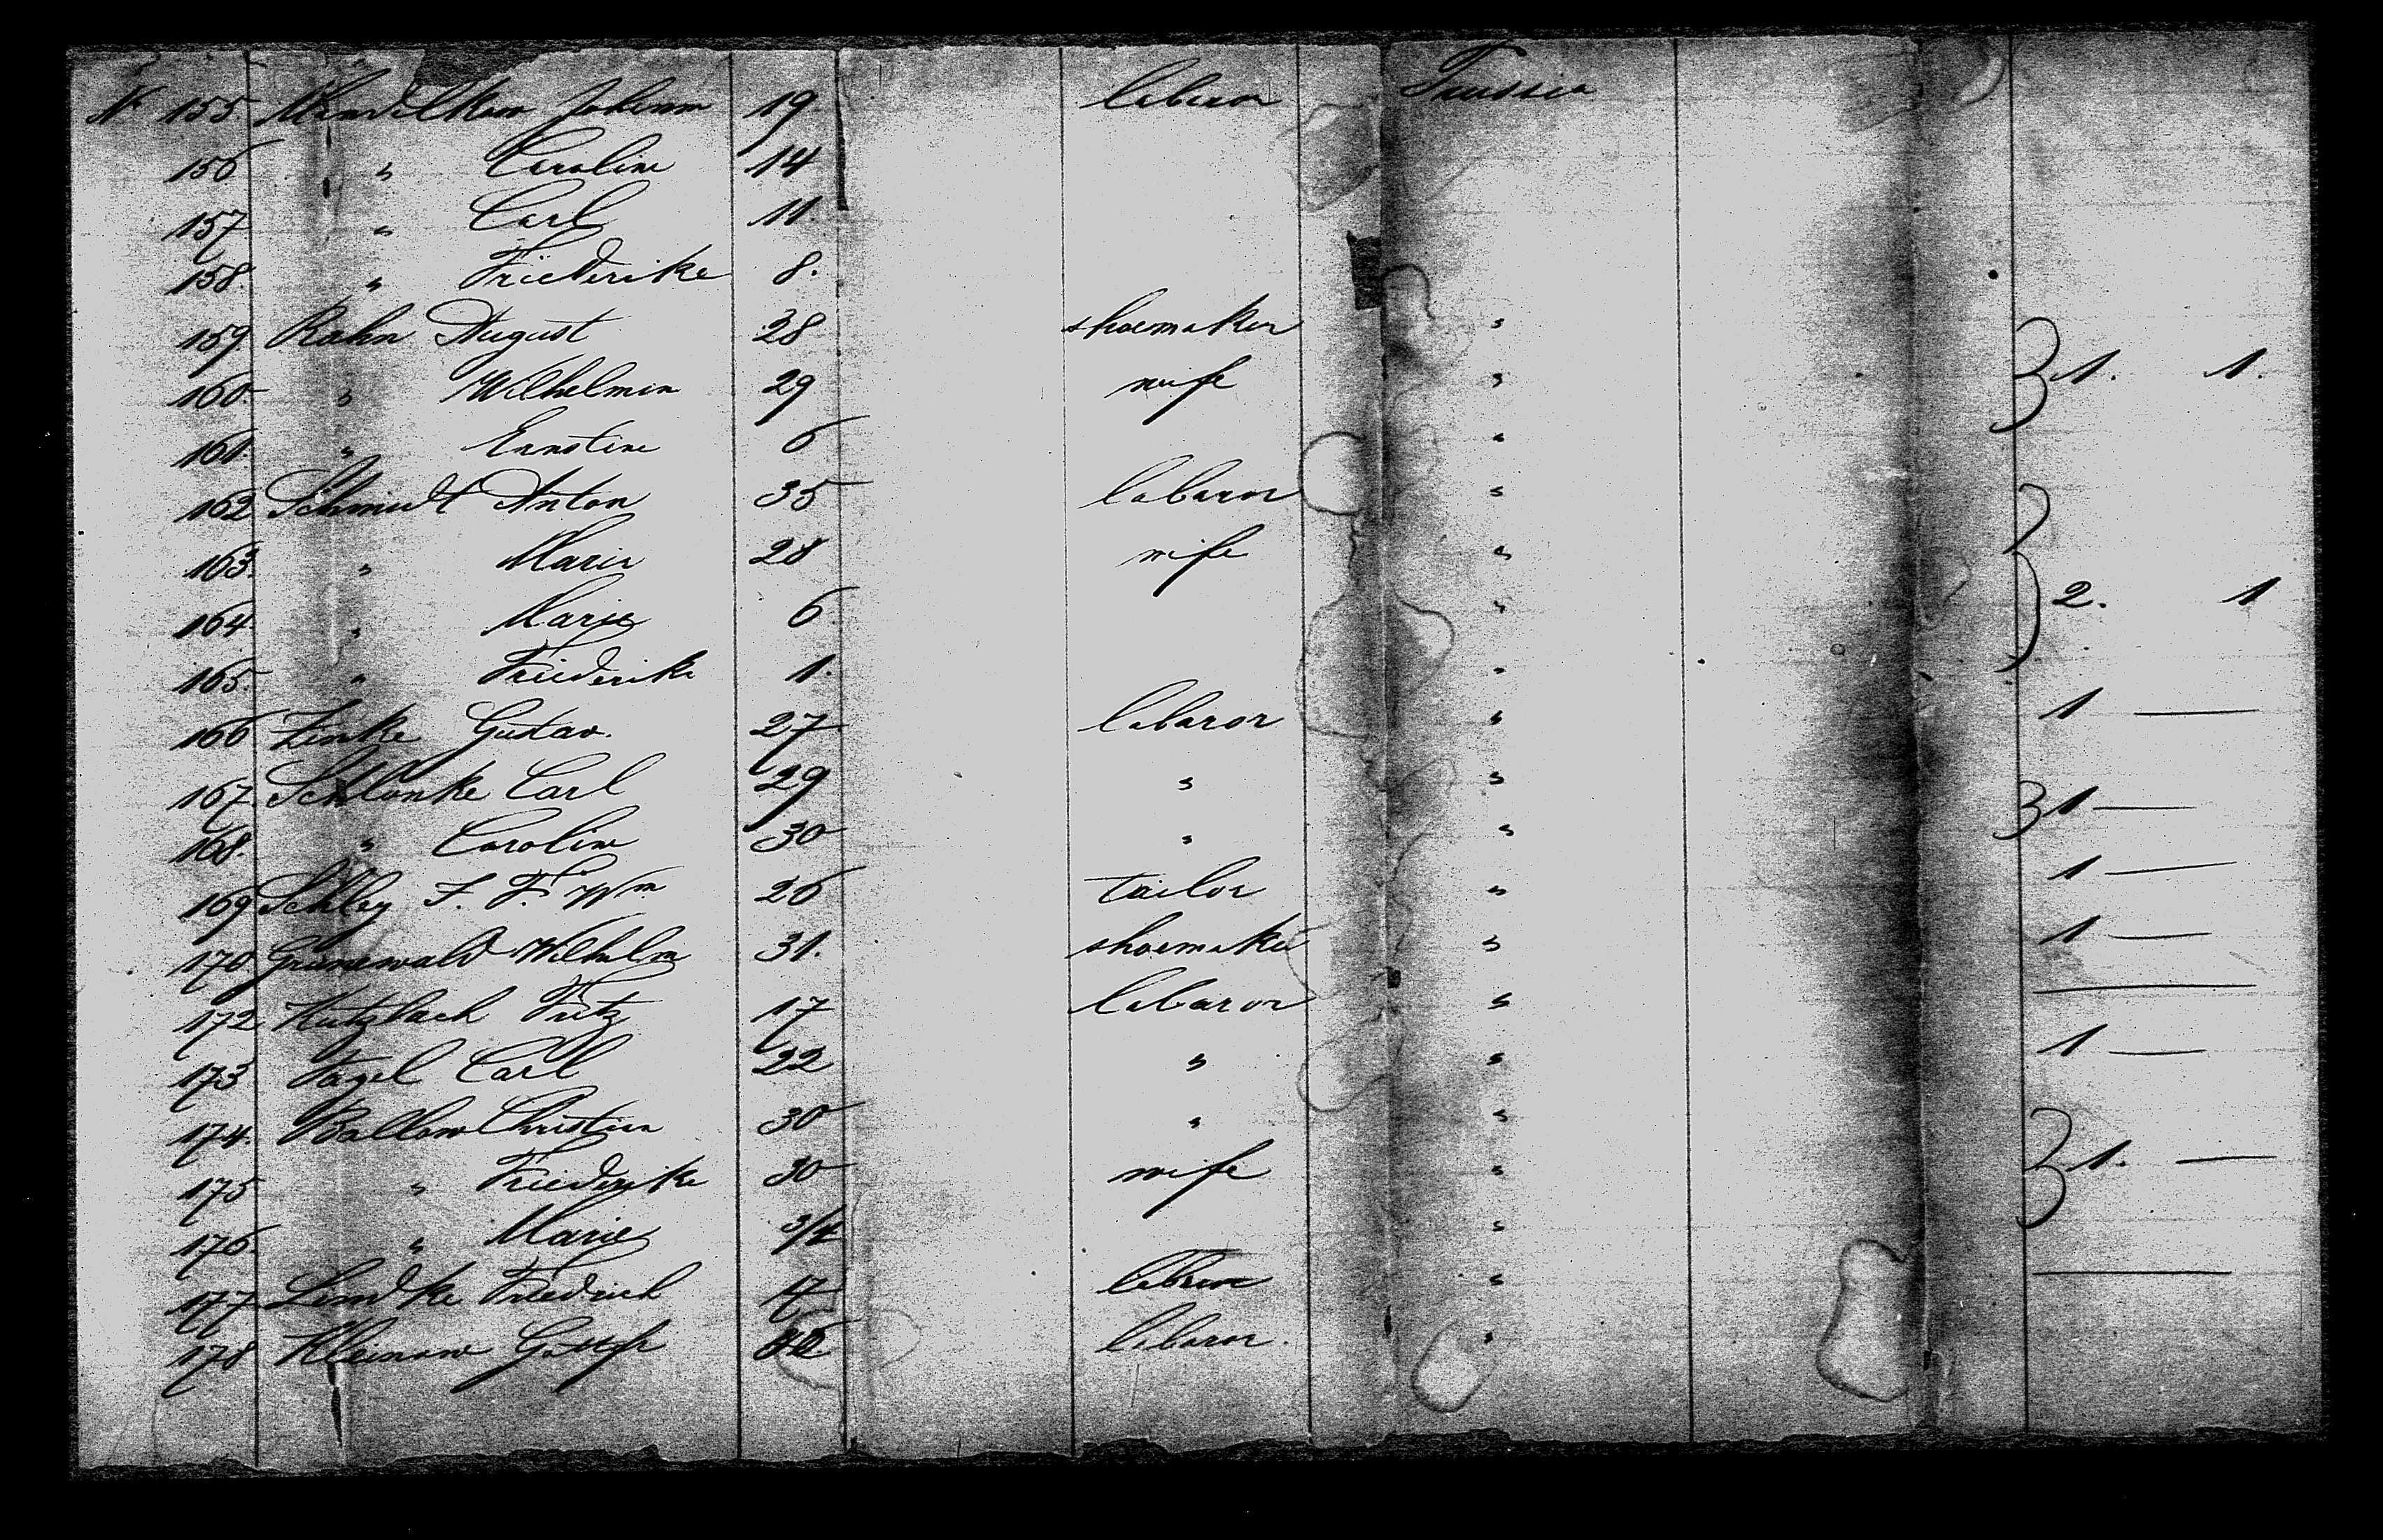 N 155 Johann 19 labaror Prussia
156 " Caroline 14
157 " Carl 11.
158. " Friederike 8.
159 Rahn August 28 shoemaker "
160 " Wilhelmin 29 wife " 1. 1.
161. " Ernstine 6 "
162 Schmidt Anton 35 labaror "
163. " Marie 28 wife "
164 " Marie 6. " 2. 1
165. " Friederike 1. "
166 Zinke Gustav. 27 labaror " 1 —
167 Schlonke Carl 29 " " 1 —
168. " Caroline 30 " "
169 Schley F. F. Wm 26 tailor " 1 —
170 Grunewald Wilhelm 31. shoemaker " 1 —
172 Kutzbach Fritz 17 labaror " —
173 Vagel Carl 22 " " 1 —
174. Ballow Christian 30 " "
175 " Friederike 30 wife " 1. —
176. " Marie 3/4 "
177 Lemdke Friedrich 17 labaror " —
178 Kleinow Gottfr labaror. "